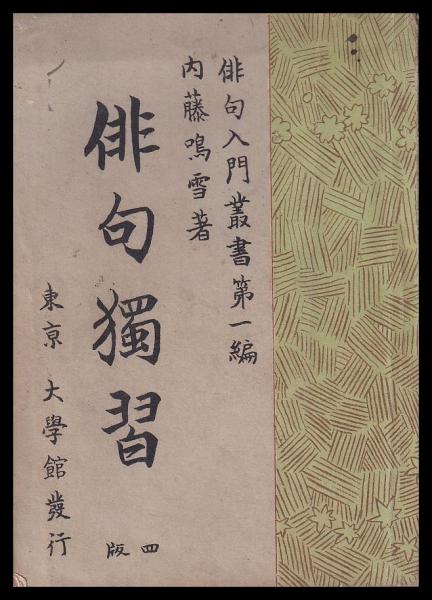 俳句入門叢書第一編
内藤鳴雪著
俳句獨習
東京 大學館發行
四版